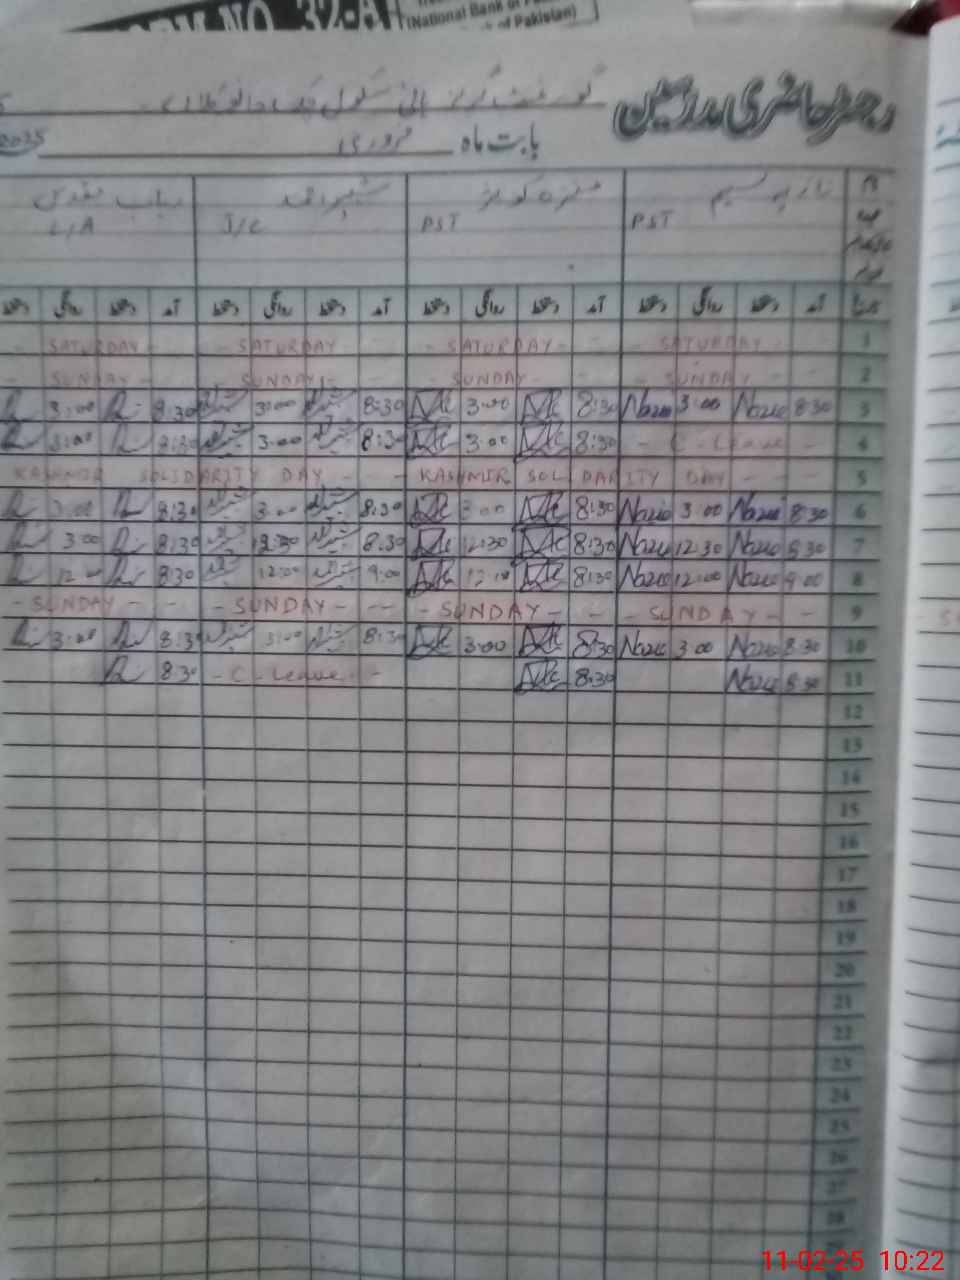 FORM NO. 32-A
(National Bank of
of Pakistan)
رجسٹر حاضری مدرسین گورنمنٹ گرلز ہائی سکول
بابت ماہ فروری 2025
نازیہ نسیم PST
PST
شبیر احمد J/C
رباب مقدس L/A
تاریخ آمد دستخط روانگی دستخط آمد دستخط روانگی دستخط آمد دستخط روانگی دستخط آمد دستخط روانگی دستخط
1 SATURDAY SATURDAY SATURDAY SATURDAY
2 SUNDAY SUNDAY SUNDAY SUNDAY
3 8:30 Nazie 3:00 Nazie 8:30 3:00 8:30 3:00 8:30 3:00
4 C-Leave 8:30 3:00 8:30 3:00 8:30 3:00
5 KASHMIR SOLIDARITY DAY KASHMIR SOLIDARITY DAY
6 8:30 Nazie 3:00 Nazie 8:30 3:00 8:30 3:00 8:30 3:00
7 8:30 Nazie 12:30 Nazie 8:30 12:30 8:30 12:30 8:30 3:00
8 9:00 Nazie 12:00 Nazie 8:30 12:00 9:00 12:00 8:30 12:00
9 SUNDAY SUNDAY SUNDAY SUNDAY
10 8:30 Nazie 3:00 Nazie 8:30 3:00 8:30 3:00 8:30 3:00
11 8:30 Nazie 8:30 C-Leave 8:30
12
13
14
15
16
17
18
19
20
21
22
23
24
25
26
27
28
11-02-25 10:22